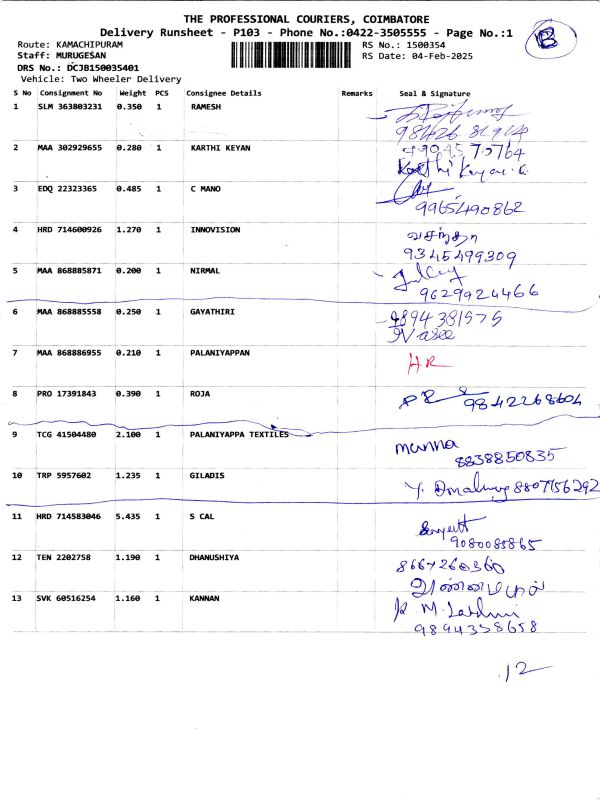 THE PROFESSIONAL COURIERS, COIMBATORE
Delivery Runsheet - P103 - Phone No.:0422-3505555 - Page No.:1
B
Route: KAMACHIPURAM
RS No.: 1500354
Staff: MURUGESAN
RS Date: 04-Feb-2025
DRS No.: DCJB150035401
Vehicle: Two Wheeler Delivery
S No Consignment No Weight PCS Consignee Details Remarks Seal & Signature
1 SLM 363803231 0.350 1 RAMESH
2 MAA 302929655 0.280 1 KARTHI KEYAN
Karthi Keyan.
3 EDQ 22323365 0.485 1 C MANO
9965490862
4 HRD 714600926 1.270 1 INNOVISION
வசந்தா
9345499309
5 MAA 868885871 0.200 1 NIRMAL
9629924466
6 MAA 868885558 0.250 1 GAYATHIRI
9894381575
7 MAA 868886955 0.210 1 PALANIYAPPAN
HR
8 PRO 17391843 0.390 1 ROJA
9842268604
9 TCG 41504480 2.100 1 PALANIYAPPA TEXTILES
Munna
8838850835
10 TRP 5957602 1.235 1 GILADIS
8807156292
11 HRD 714583046 5.435 1 S CAL
9080085865
12 TEN 2202758 1.190 1 DHANUSHIYA
8667260360
13 SVK 60516254 1.160 1 KANNAN
9894358658
12